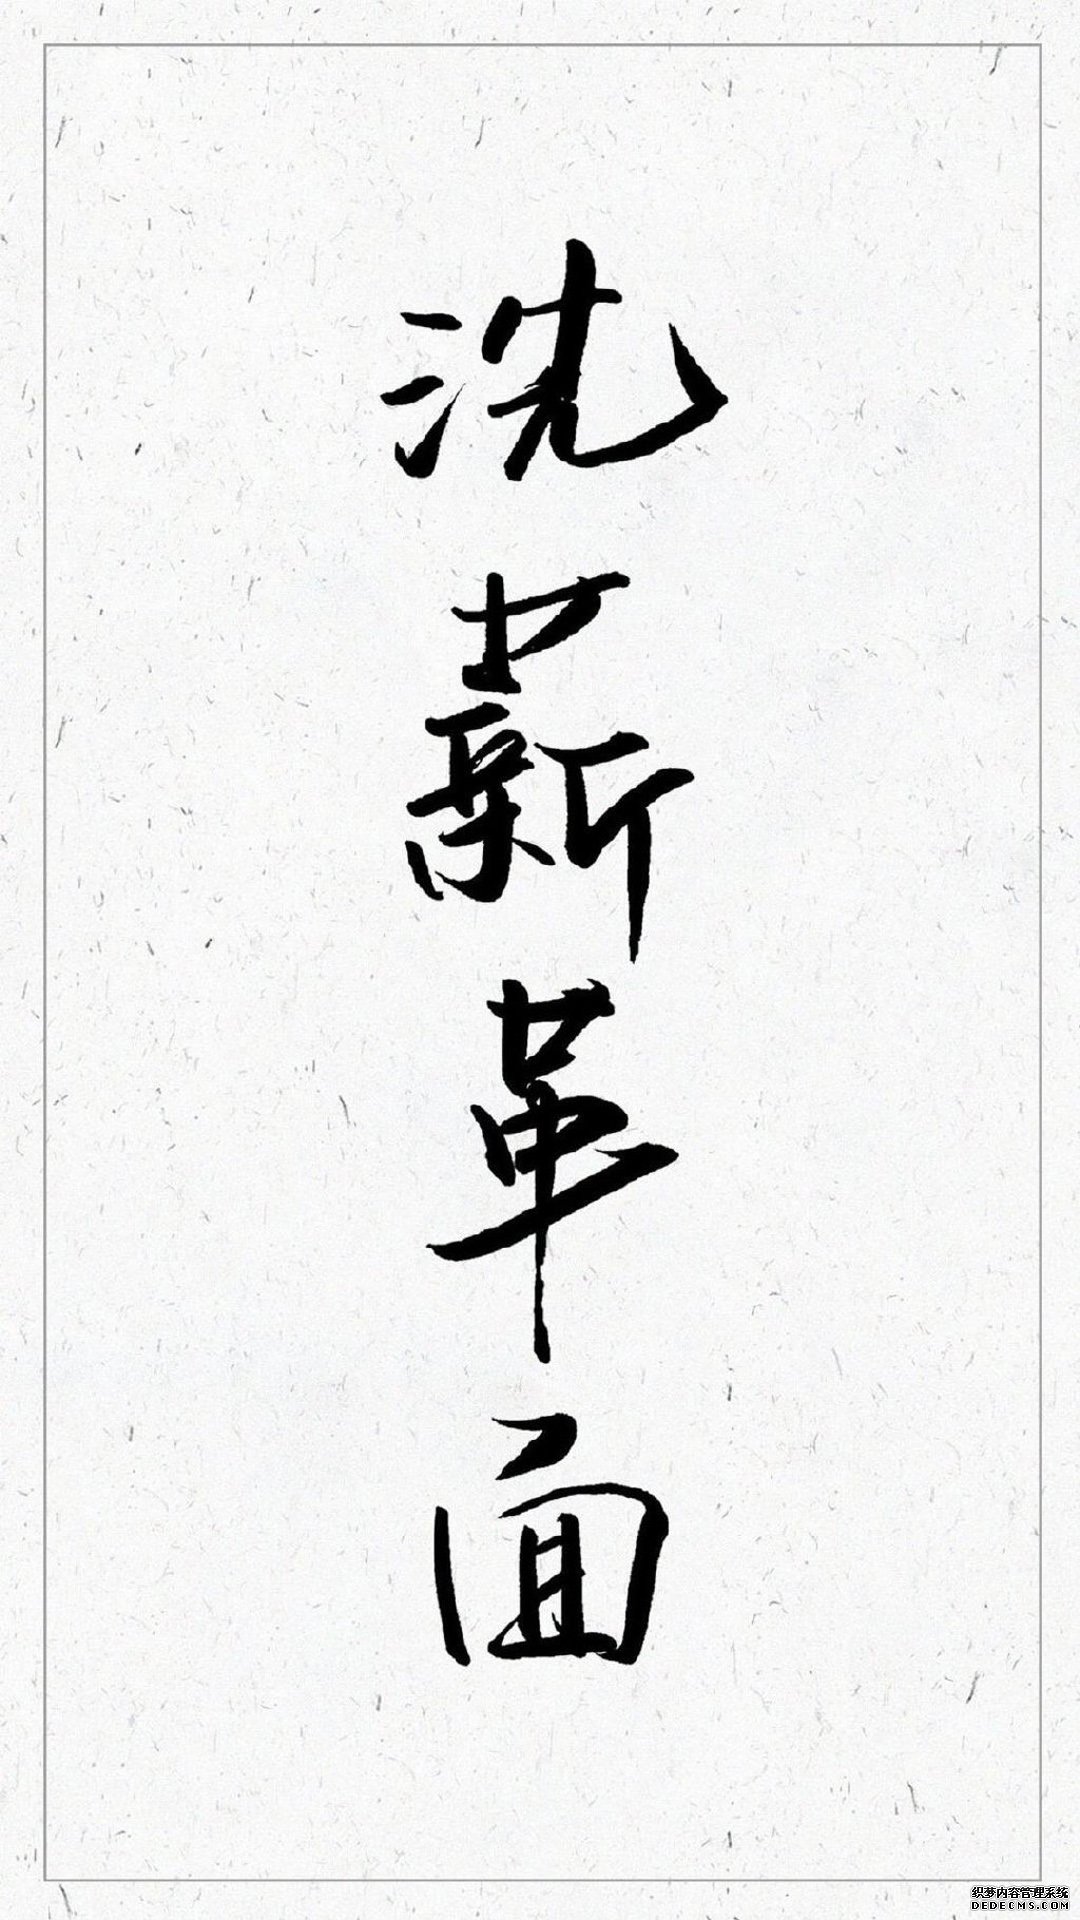 洗薪革面
织梦内容管理系统
DEDECMS.COM